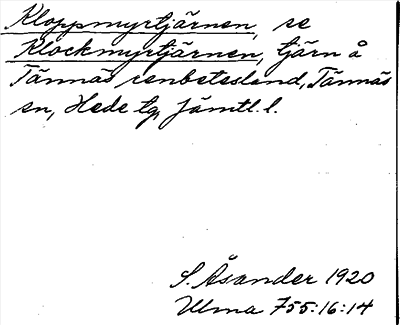 Kloppmyrtjärnen, se
Klockmyrtjärnen, tjärn å
Tännäs renbetesland, Tännäs
sn, Hede tg, Jämtl. l.
S. Åsander 1920
Ulma 755:16:14